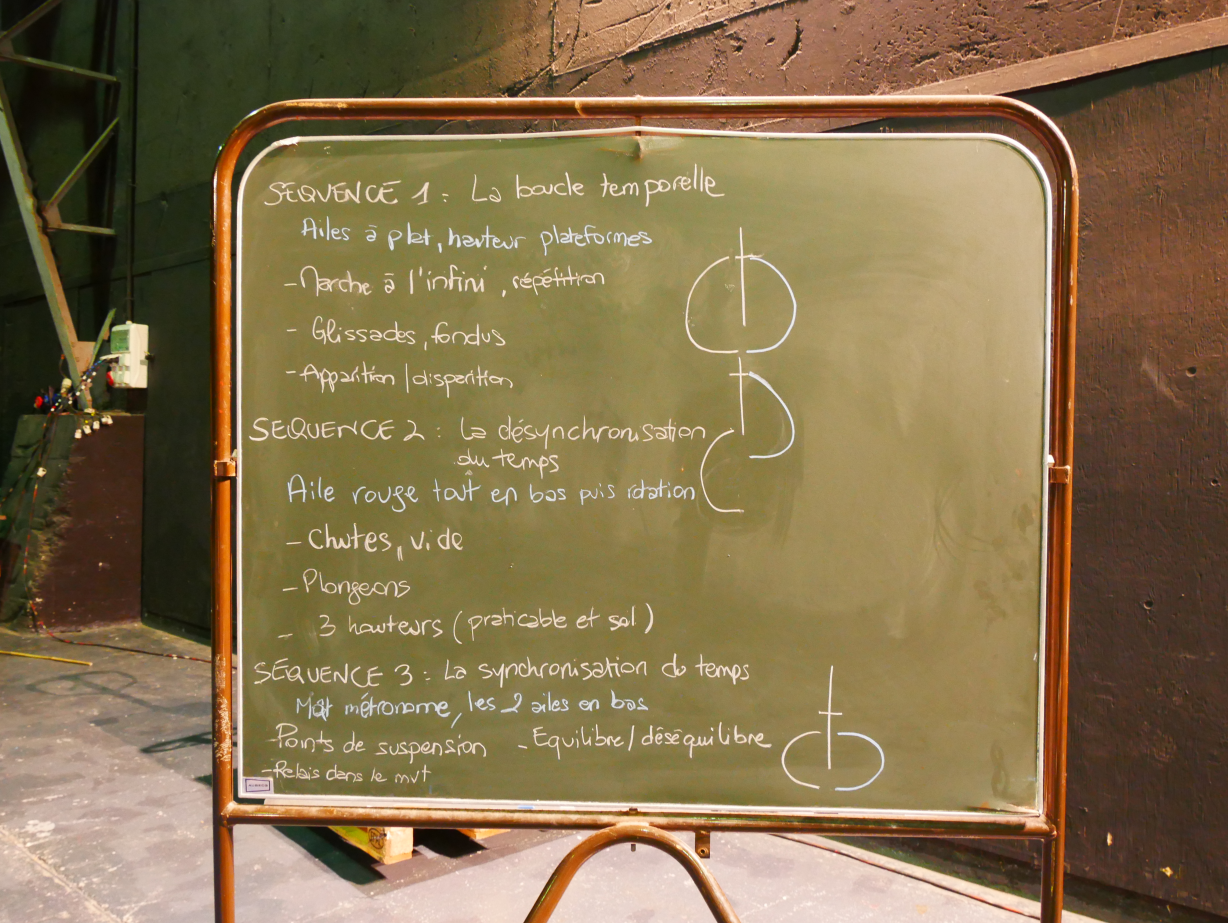 SEQUENCE 1 : La boucle temporelle
Ailes à plat, hauteur plateformes
- Marche à l'infini, répétition
- Glissades, fondus
- Apparition / disparition
SEQUENCE 2 : La désynchronisation
du temps
Aile rouge tout en bas puis rotation
- Chutes, vide
- Plongeons
- 3 hauteurs (praticable et sol)
SEQUENCE 3 : La synchronisation du temps
Mât métronome, les 2 ailes en bas
- Points de suspension - Equilibre / déséquilibre
- Relais dans le mvt